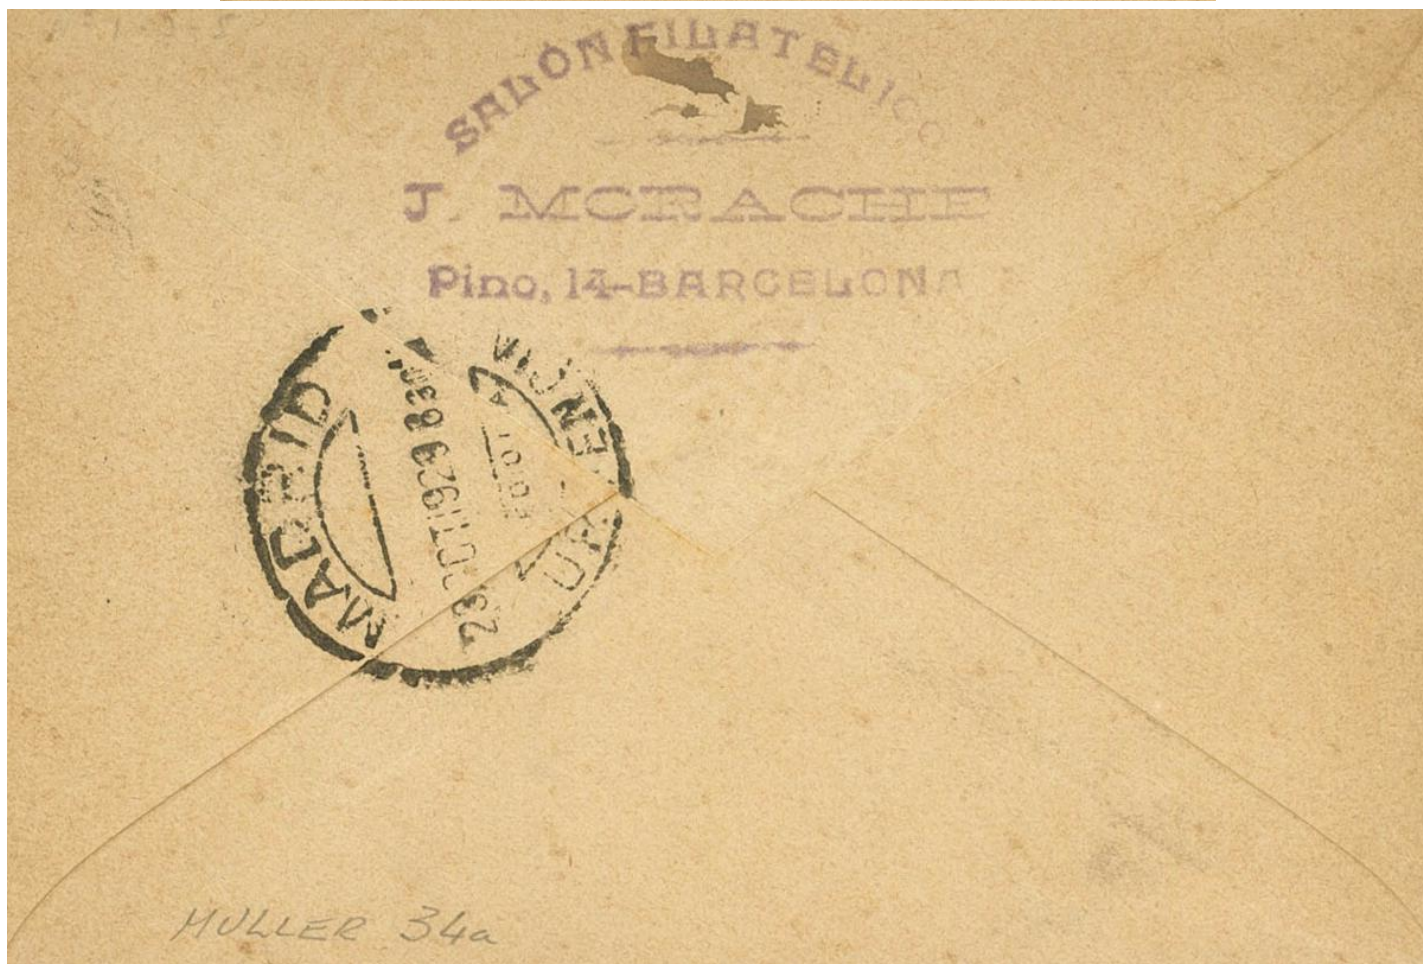 SALÓN FILATELICO
J. MORACHE
Pino, 14-BARCELONA
MADRID
28 OCT 1929 8 30
URGENCIA
MULLER 34a